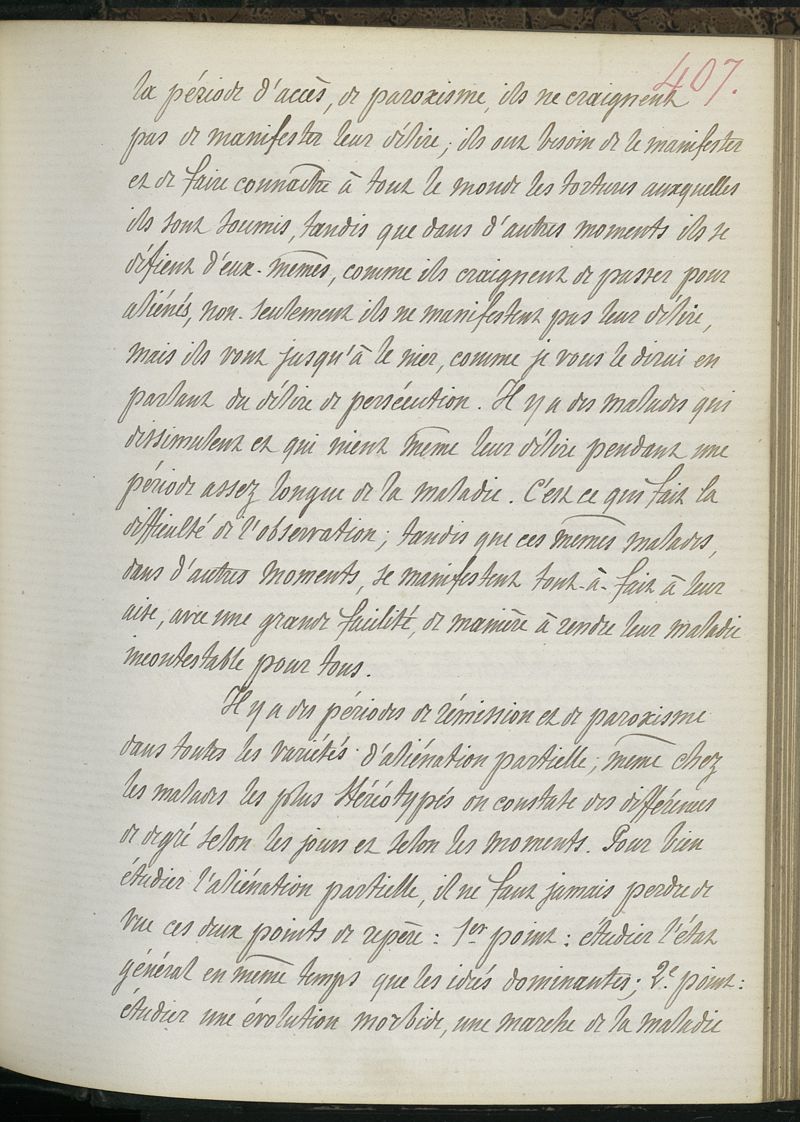 407.
la période d'accès, de paroxisme, ils ne craignent
pas de manifester leur délire; ils ont besoin de le manifester
et de faire connaître à tout le monde les tortures auxquelles
ils sont soumis, tandis que dans d'autres moments ils se
défient d'eux-mêmes, comme ils craignent de passer pour
aliénés, non-seulement ils ne manifestent pas leur délire,
mais ils vont jusqu'à le nier, comme je vous le dirai en
parlant du délire de persécution. Il y a des malades qui
dissimulent et qui nient même leur délire pendant une
période assez longue de la maladie. C'est ce qui fait la
difficulté de l'observation; tandis que ces mêmes malades,
dans d'autres moments, se manifestent tout-à-fait à leur
aise, avec une grande facilité, de manière à rendre leur maladie
incontestable pour tous.
Il y a des périodes de rémission et de paroxisme
dans toutes les variétés d'aliénation partielle; même chez
les malades les plus stéréotypés on constate des différences
de degré selon les jours et selon les moments. Pour bien
étudier l'aliénation partielle, il ne faut jamais perdre de
vue ces deux points de repère: 1er point: étudier l'état
général en même temps que les idées dominantes; 2e point:
étudier une évolution morbide, une marche de la maladie